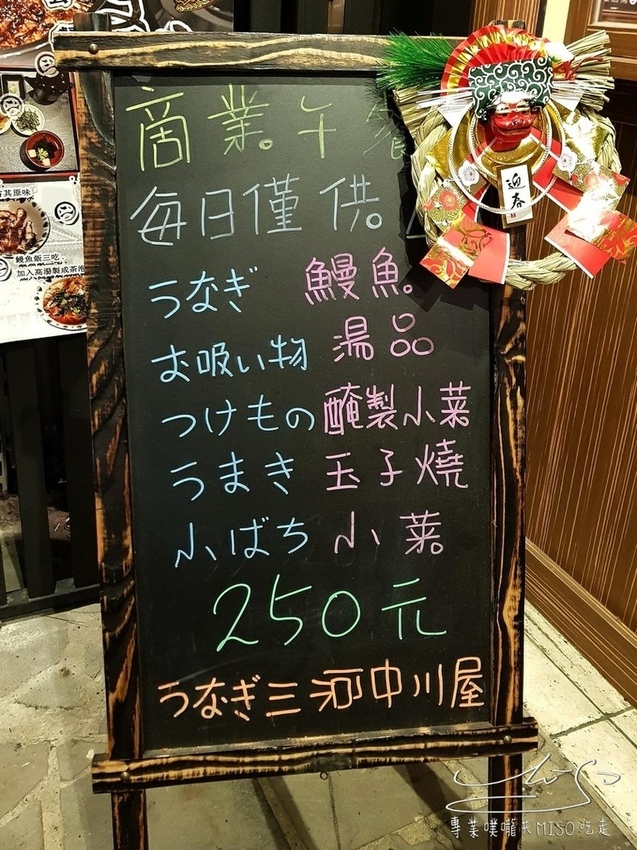 商業午餐
每日僅供
うなぎ 鰻魚
お吸い物 湯品
つけもの 醃製小菜
うまき 玉子燒
小ばち 小菜
250元
うなぎ三河中川屋
迎春
鰻魚飯三吃
加入高湯製成茶泡
專業噗嚨共MISO吃走